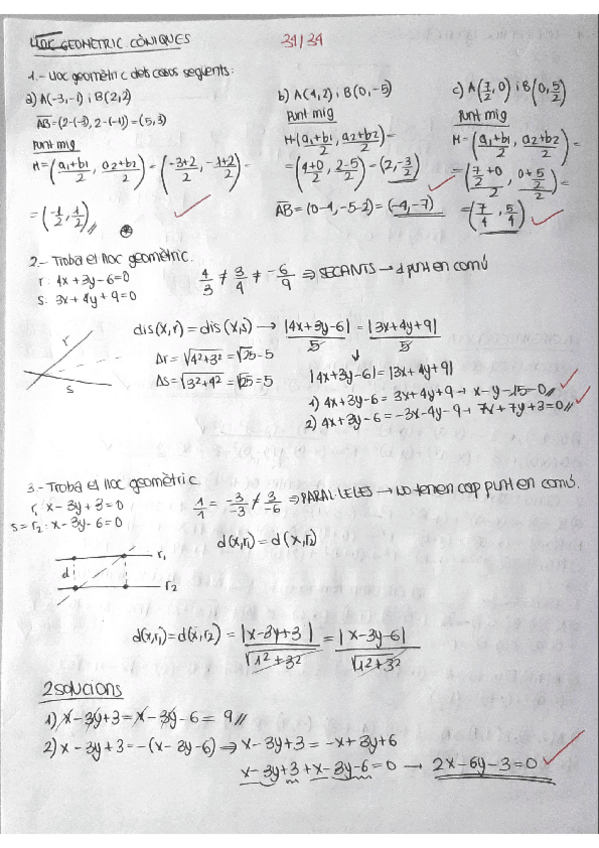 LLOC GEOMETRIC CÒNIQUES
31/34
1.- Lloc geomètric dels casos següents:
a) A(-3,-1) i B(2,2)
AB=(2-(-3), 2-(-1))=(5,3)
Punt mig
M=(a1+b1/2, a2+b2/2)=(-3+2/2, -1+2/2)=
=(-1/2, 1/2)//
b) A(4,2) i B(0,-5)
Punt mig
M=(a1+b1/2, a2+b2/2)=
=(4+0/2, 2-5/2)=(2,-3/2)
AB=(0-4,-5-2)=(-4,-7)
c) A(7/2,0) i B(0,5/2)
Punt mig
M=(a1+b1/2, a2+b2/2)=
=(7/2+0/2, 0+5/2/2)=
=(7/4, 5/4)
2.- Troba el lloc geomètric.
r: 4x+3y-6=0
s: 3x+4y+9=0
4/3 ≠ 3/4 ≠ -6/9 ⇒ SECANTS → 1 punt en comú
r
s
dis(x,r)=dis(x,s) → |4x+3y-6|/5 = |3x+4y+9|/5
Δr=√4²+3²=√25=5
Δs=√3²+4²=√25=5
|4x+3y-6|=|3x+4y+9|
1) 4x+3y-6=3x+4y+9→ x-y-15=0//
2) 4x+3y-6=-3x-4y-9→ 7x+7y+3=0//
3.- Troba el lloc geomètric.
r1: x-3y+3=0
s=r2: x-3y-6=0
1/1 = -3/-3 ≠ 3/-6 ⇒ PARAL·LELES → No tenen cap punt en comú.
d(x,r1)=d(x,r2)
r1
d
r2
d(x,r1)=d(x,r2) = |x-3y+3|/√1²+3² = |x-3y-6|/√1²+3²
2 solucions
1) x-3y+3=x-3y-6= 9//
2) x-3y+3=-(x-3y-6) ⇒ x-3y+3=-x+3y+6
x-3y+3+x-3y-6=0 → 2x-6y-3=0